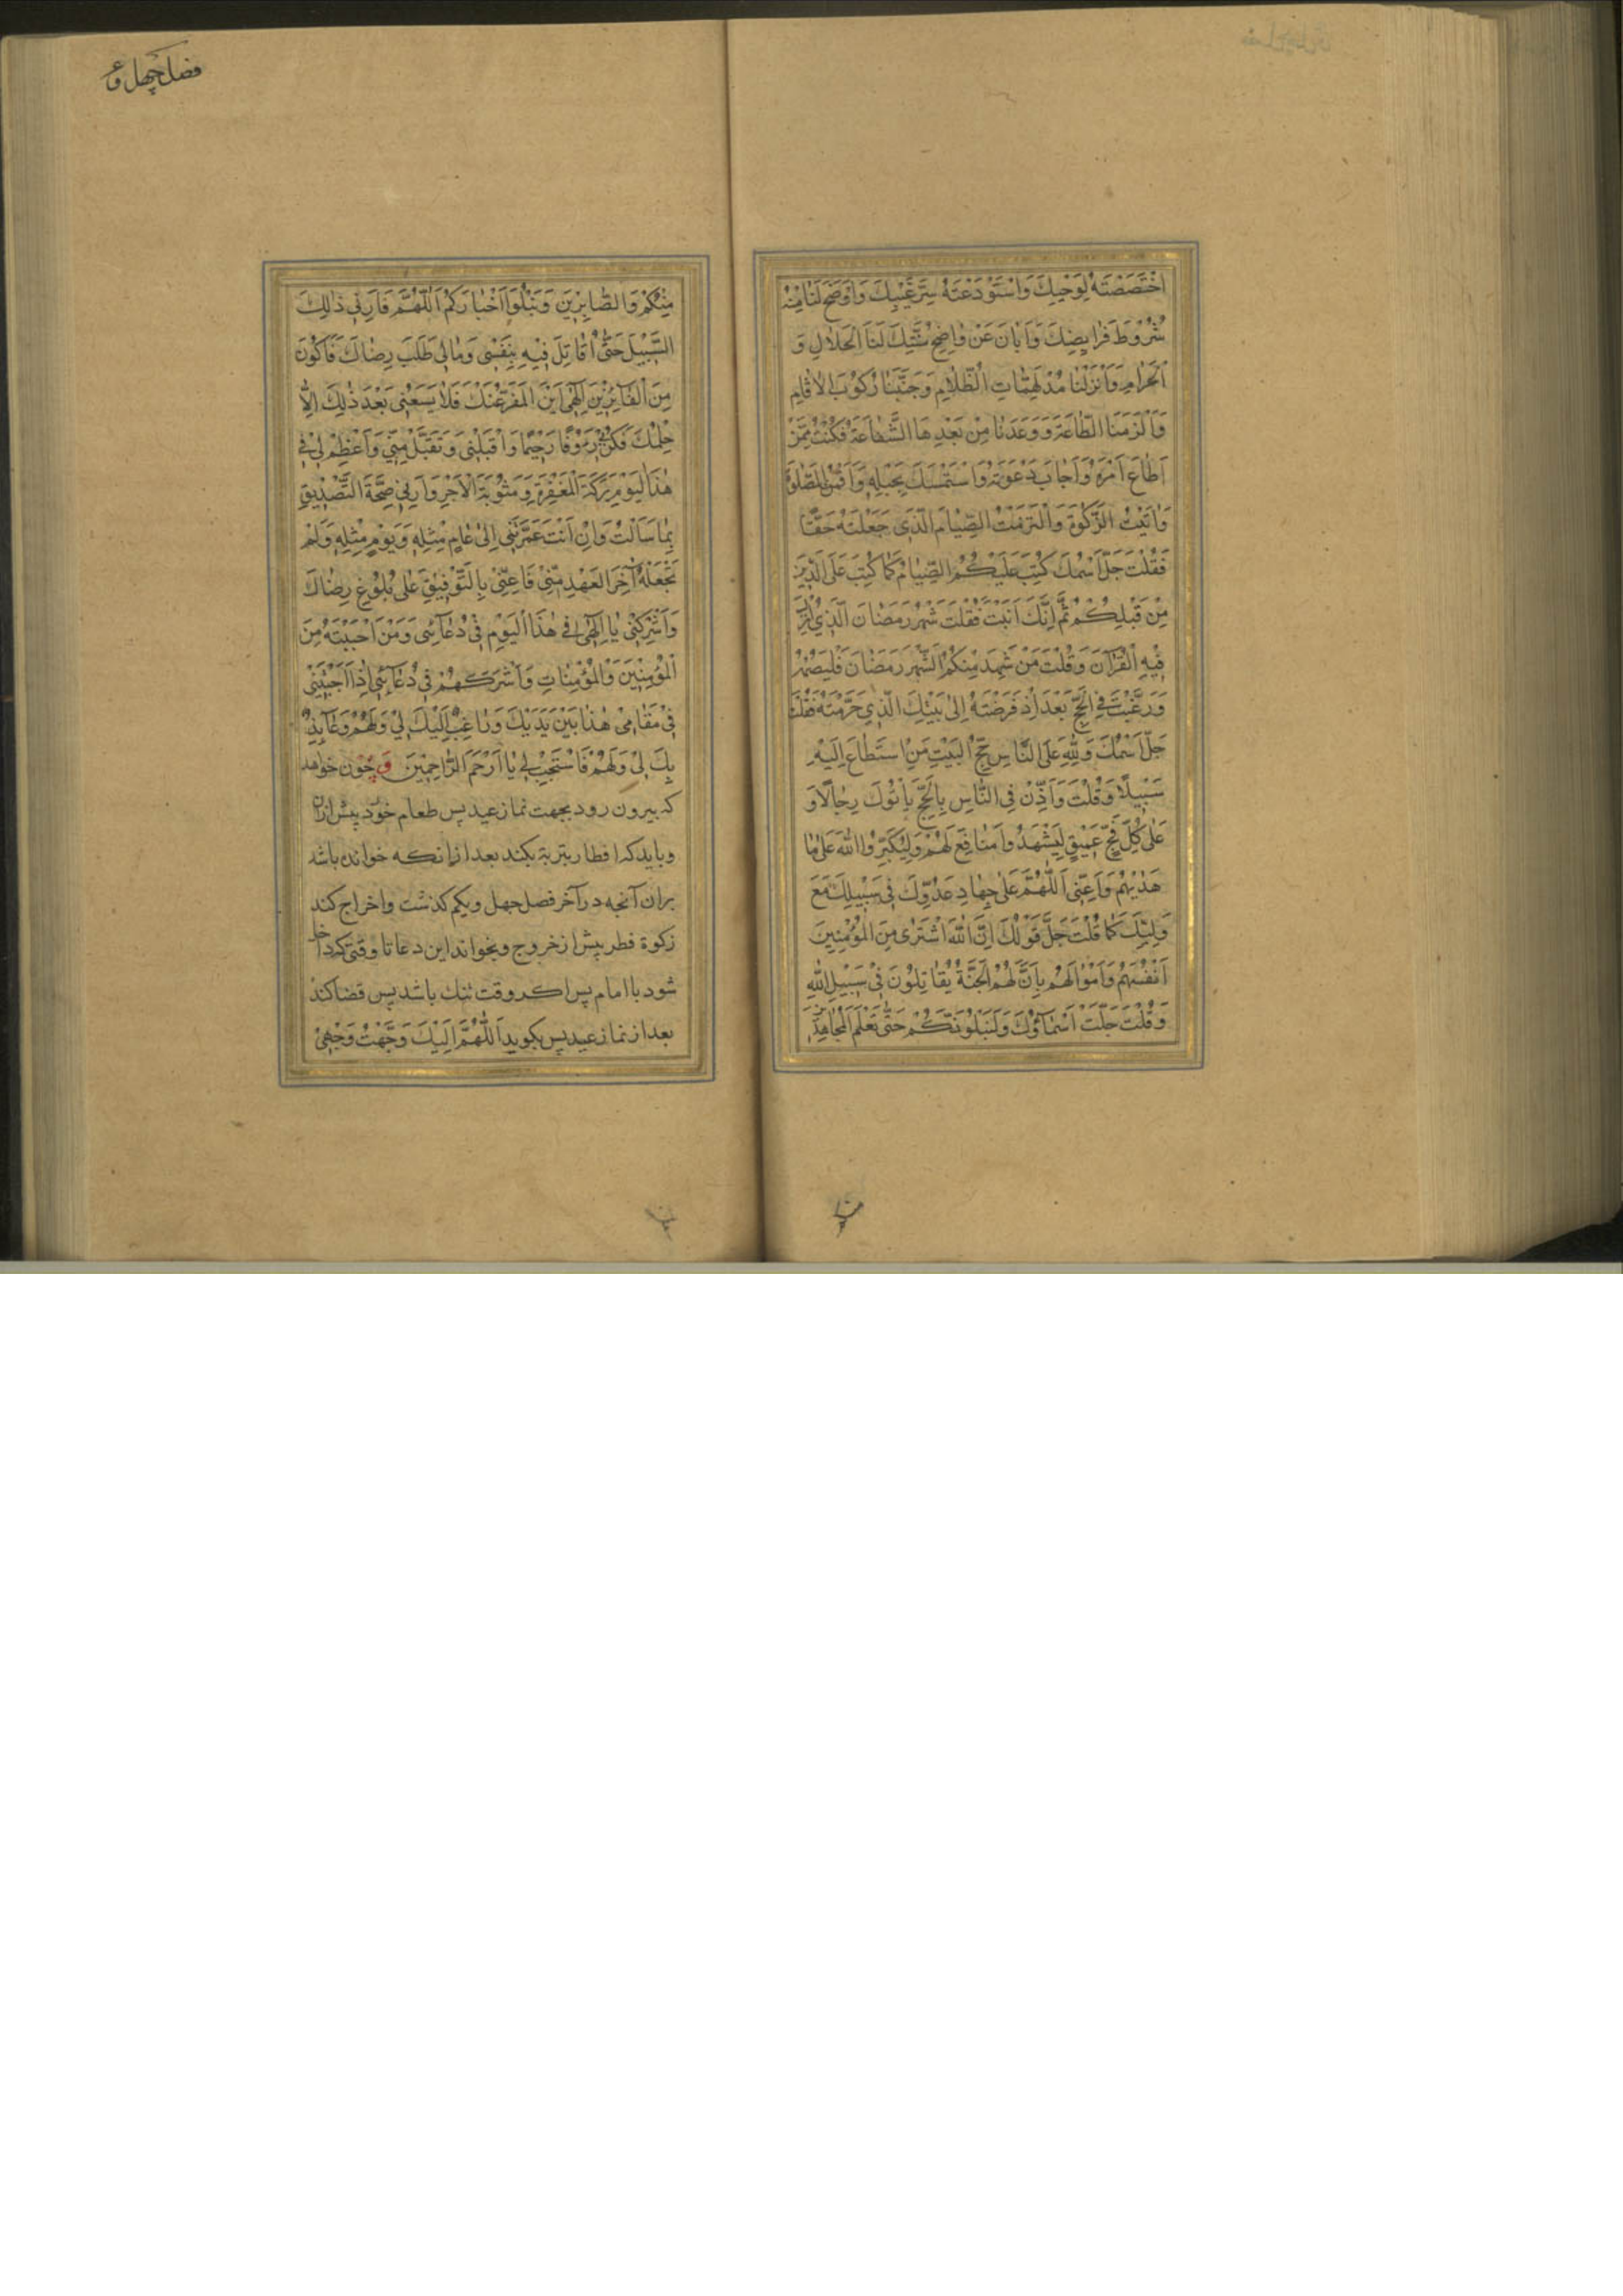 اَخْتَصَصْتَهُ لِوَحْيِكَ وَاسْتَوْدَعْتَهُ سِرَّ غَيْبِكَ وَاَوْضَحَ لَنَا مِنْهُ
شُرُوطَ فَرَايِضِكَ وَاَبَانَ عَنْ وٰاضِحِ سُنَّتِكَ لَنَا اَلْحَلالِ وَ
اَلْحَرَامِ وَاَنْزَلْنَا مُدْلَهِمّٰاتِ الْظَّلٰامِ وَجَنَّبَنٰا رُكُوبَ الٰاثٰامِ
وَاَلْزَمَنَا الطّٰاعَةَ وَوَعَدَنٰا مِنْ بَعْدِهَا الشَّفٰاعَةَ فَكُنْتُ مِمَّنْ
اَطٰاعَ اَمْرَهُ وَاَجٰابَ دَعْوَتَهُ وَاسْتَمْسَكَ بِحَبْلِهِ وَاَقَمْتُ الصَّلٰوةَ
وَاٰتَيْتُ الزَّكٰوةَ وَالْتَزَمْتُ الصِّيٰامَ الَّذِي جَعَلْتَهُ حَقًّا
فَقُلْتَ جَلَّ اَسْمُكَ كُتِبَ عَلَيْكُمُ الصِّيٰامُ كَمٰا كُتِبَ عَلَى الَّذِينَ
مِنْ قَبْلِكُمْ ثُمَّ اِنَّكَ اَبَنْتَ فَقُلْتَ شَهْرُ رَمَضٰانَ الَّذِي اُنْزِلَ
فِيْهِ الْقُرْآنَ وَقُلْتَ مَنْ شَهِدَ مِنْكُمُ الشَّهْرَ رَمَضٰانَ فَلْيَصُمْهُ
وَرَغَّبْتَ فِي الْحَجِّ بَعْدَ اِذْ فَرَضْتَهُ اِلىٰ بَيْتِكَ الَّذِي حَرَّمْتَهُ فَقُلْتَ
جَلَّ اَسْمُكَ وَلِلّٰهِ عَلَى النّٰاسِ حِجُّ الْبَيْتِ مَنِ اسْتَطٰاعَ اِلَيْهِ
سَبِيلًا وَقُلْتَ وَاَذِّنْ فِي النّٰاسِ بِالْحَجِّ يَأْتُوكَ رِجٰالًا وَ
عَلىٰ كُلِّ فَجٍّ عَمِيْقٍ لِيَشْهَدُوا مَنٰافِعَ لَهُمْ وَلِيُكَبِّرُوا اللّٰهَ عَلىٰ مٰا
هَدٰيهُمْ وَاَعِنِّي اَللّٰهُمَّ عَلىٰ جِهٰادِ عَدُوِّكَ فِي سَبِيلِكَ مَعَ
وَلِيِّكَ كَمٰا قُلْتَ جَلَّ قَوْلُكَ اِنَّ اللّٰهَ اشْتَرٰى مِنَ الْمُؤْمِنِينَ
اَنْفُسَهُمْ وَاَمْوٰالَهُمْ بِاَنَّ لَهُمُ الْجَنَّةَ يُقٰاتِلُوْنَ فِيْ سَبِيْلِ اللّٰهِ
وَقُلْتَ جَلَّتْ اَسْمٰآؤُكَ وَلَنَبْلُوَنَّكُمْ حَتّٰى نَعْلَمَ الْمُجٰاهِدِيْنَ
فصل چهل و
مِنْكُمْ وَالصّٰابِرِيْنَ وَنَبْلُوَا اَخْبٰارَكُمْ اَللّٰهُمَّ فَاَرِنِي ذٰلِكَ
السَّبِيْلَ حَتّٰى اُقٰاتِلَ فِيْهِ بِنَفْسِي وَمٰالِي طَلَبَ رِضٰاكَ فَاَكُوْنَ
مِنَ الْفٰآئِزِيْنَ اِلٰهِي اَيْنَ الْمَفَرُّ عَنْكَ فَلٰا يَسَعُنِي بَعْدَ ذٰلِكَ اِلَّا
حِلْمُكَ فَكُنْ بِيْ رَؤُوْفًا رَحِيْمًا وَاَقْبِلْنِي وَتَقَبَّلْ مِنِّي وَاَعْظِمْ لِي فِي
هٰذَا الْيَوْمِ بَرَكَةَ الْمَغْفِرَةِ وَمَثُوْبَةَ الْاَجْرِ وَاَرِنِي صِحَّةَ التَّصْدِيْقِ
بِمٰا سَاَلْتُ وَاِنْ اَنْتَ عَمَّرْتَنِي اِلىٰ عٰامٍ مِثْلِهِ وَيَوْمٍ مِثْلِهِ وَلَمْ
تَجْعَلْهُ آخِرَ الْعَهْدِ مِنِّيْ فَاَعِنِّيْ بِالتَّوْفِيْقِ عَلىٰ بُلُوْغِ رِضٰاكَ
وَاَشْرِكْنِي يٰا اِلٰهِي فِي هٰذَا الْيَوْمِ فِيْ دُعٰآءِ مَنْ اَجَبْتَهُ مِنَ
الْمُؤْمِنِيْنَ وَالْمُؤْمِنٰاتِ وَاَشْرِكْهُمْ فِي دُعٰآئِي اِذٰا اَجَبْتَنِي
فِيْ مَقٰامِيْ هٰذٰا بَيْنَ يَدَيْكَ وَرٰاغِبٌ اِلَيْكَ لِيْ وَلَهُمْ وَعٰآئِذٌ
بِكَ لِيْ وَلَهُمْ فَاسْتَجِبْ لِي يٰا اَرْحَمَ الرّٰاحِمِيْنَ و چون خواهد
كه بيرون رود بجهت نماز عيد پس طعام خورد پيش ازان
وبايد كه افطار بتربة بكند بعد ازانكه خوانده باشد
بران آنچه در آخر فصل چهل ويكم كذشت واخراج كند
زكوة فطر پيش از خروج وبخواند اين دعا تا وقتى كه داخل
شود با امام پس اكر وقت تنك باشد پس قضا كند
بعد از نماز عيد پس بكويد اَللّٰهُمَّ اِلَيْكَ وَجَّهْتُ وَجْهِيْ